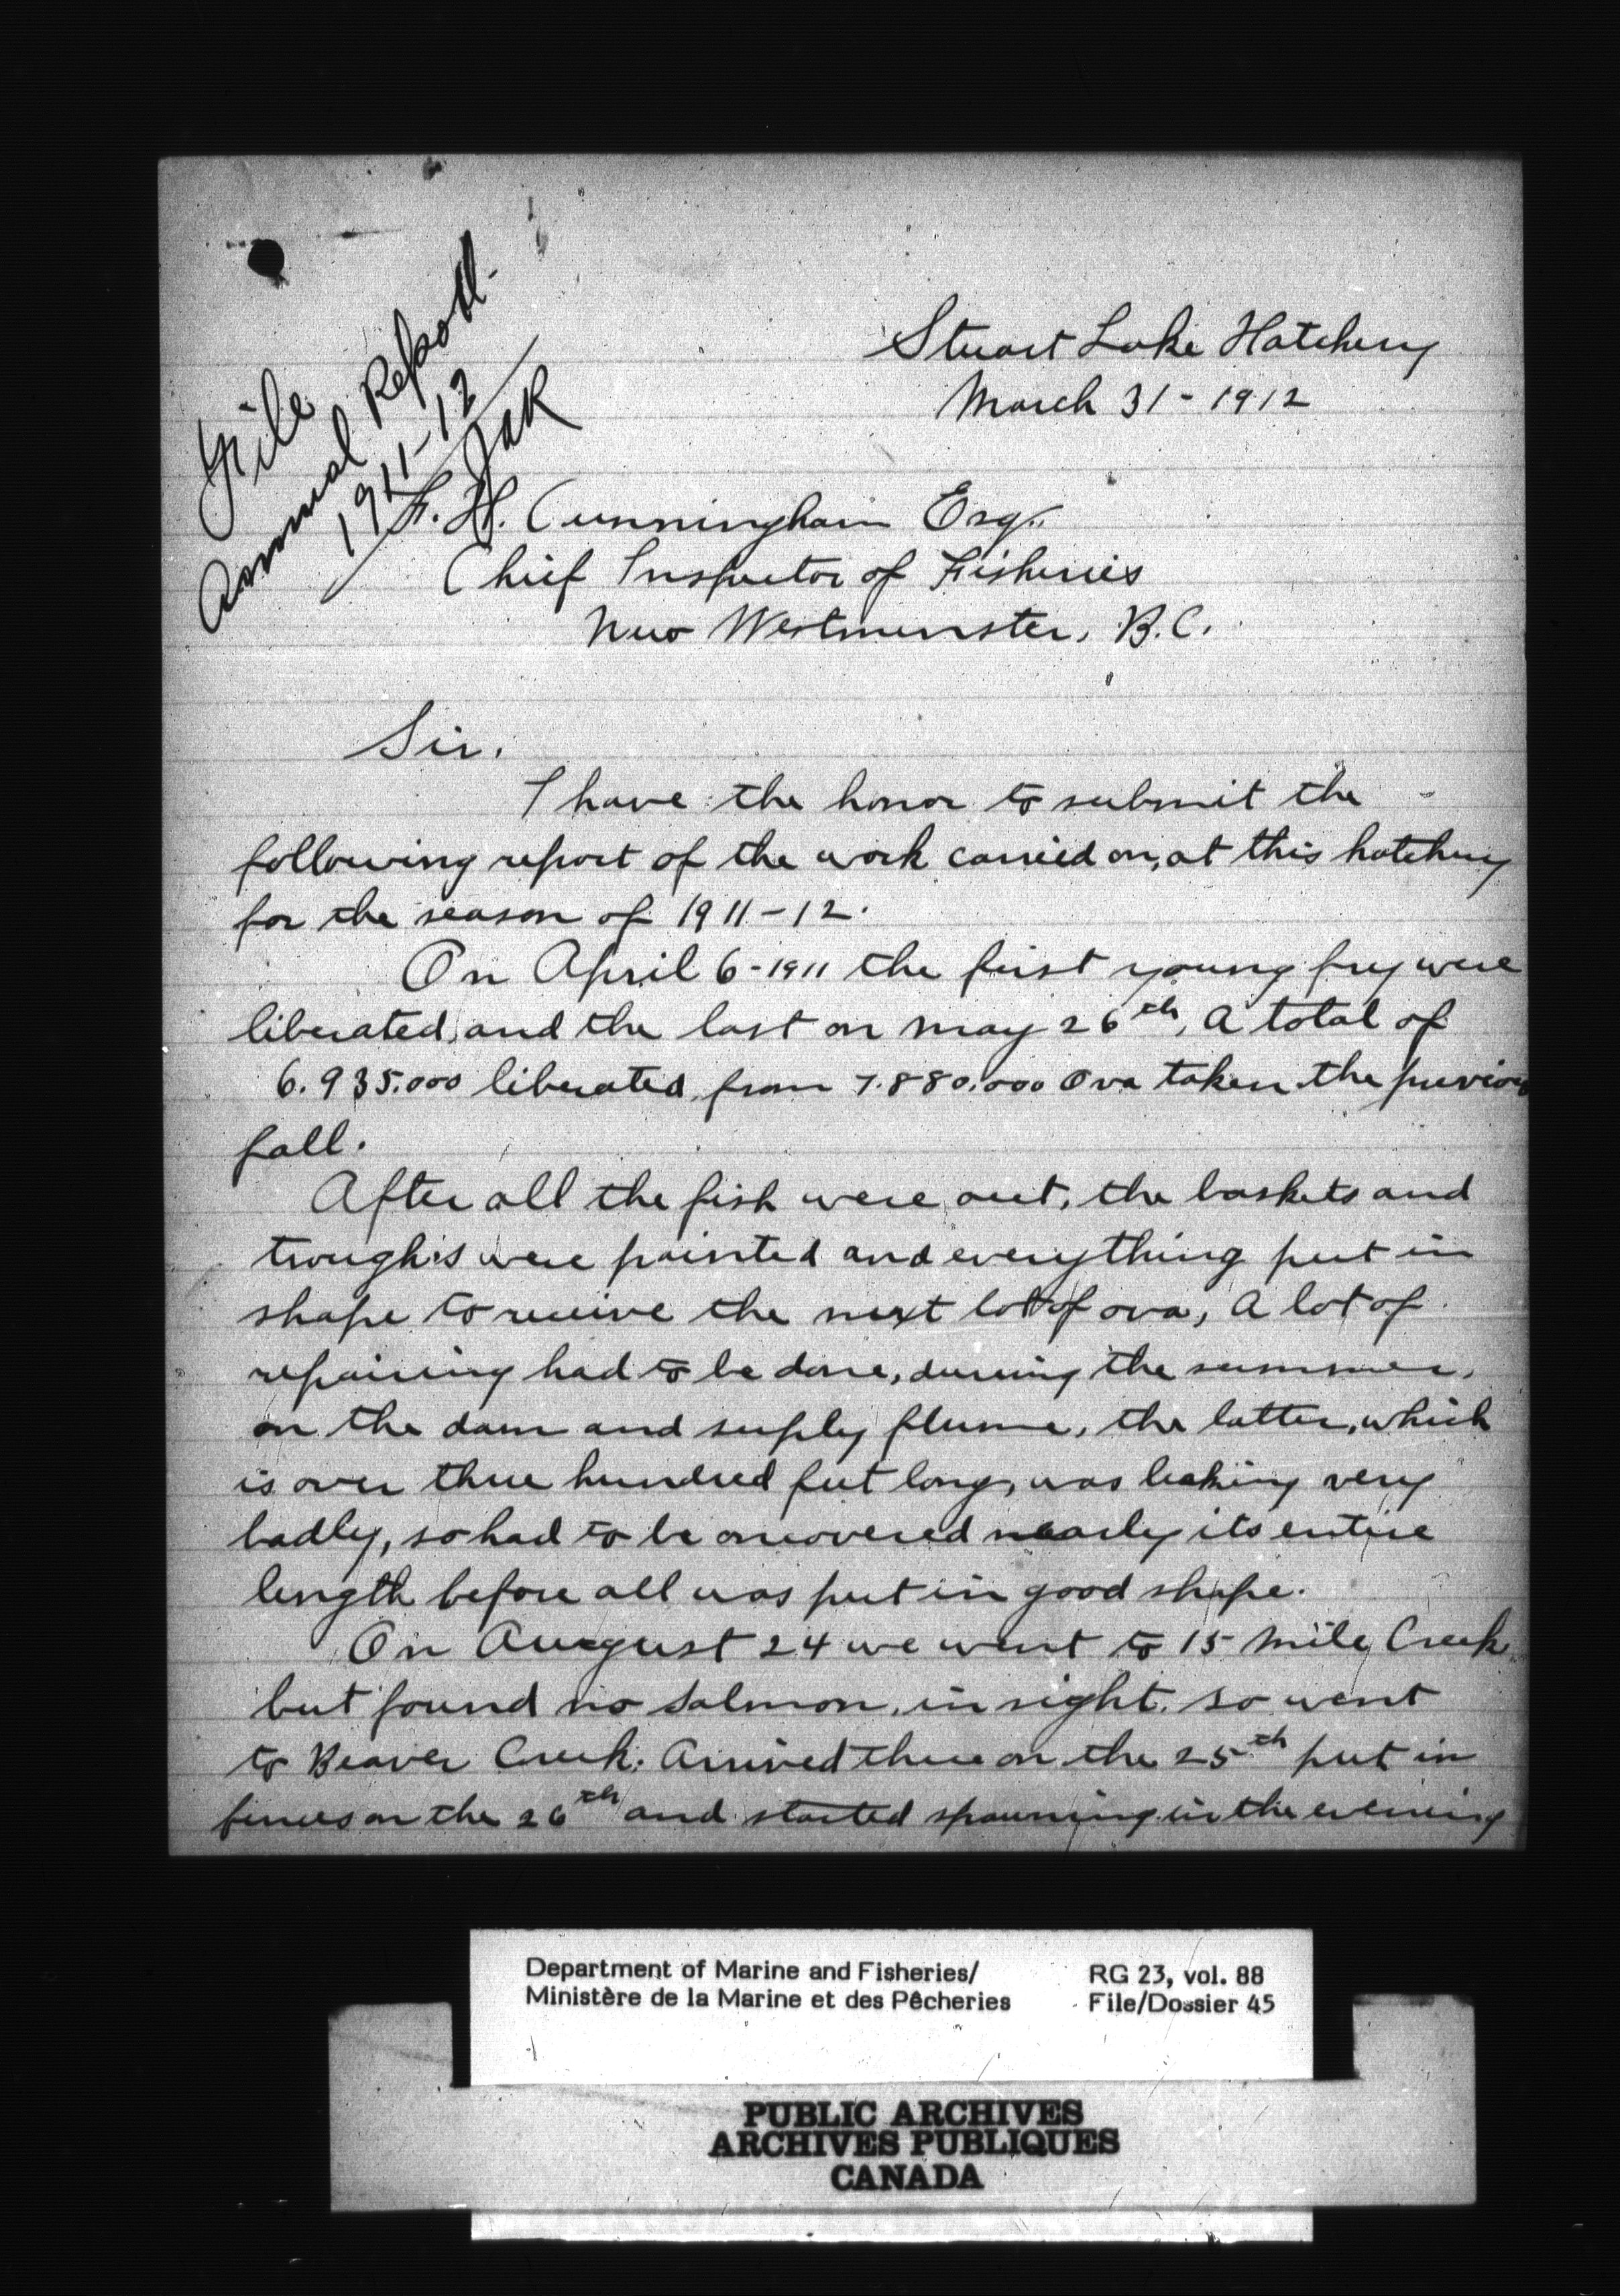 File
Annual Report
1911-12
JAR
Stuart Lake Hatchery
March 31 - 1912
F. H. Cunningham Esq.
Chief Inspector of Fisheries
New Westminster, B.C.
Sir.
I have the honor to submit the
following report of the work carried on, at this hatchery
for the season of 1911-12.
On April 6-1911 the first young fry were
liberated, and the last on May 26th, A total of
6.935.000 liberated from 7.880.000 Ova taken the previous
fall.
After all the fish were out, the baskets and
troughs were painted and everything put in
shape to receive the next lot of ova, A lot of
repairing had to be done, during the summer,
on the dam and suply flume, the latter, which
is over three hundred feet long, was leaking very
badly, so had to be uncovered nearly its entire
length before all was put in good shape.
On August 24 we went to 15 Mile Creek
but found no Salmon, in sight. so went
to Beaver Creek. Arrived there on the 25th put in
fences on the 26th and started spawning in the evening
Department of Marine and Fisheries/
Ministère de la Marine et des Pêcheries
RG 23, vol. 88
File/Dossier 45
PUBLIC ARCHIVES
ARCHIVES PUBLIQUES
CANADA